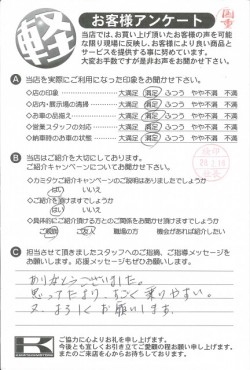 軽
お客様アンケート
当店では、お買い上げ頂いたお客様の声を可能
な限り現場に反映し、お客様により良い商品と
サービスを提供する事に努めています。
大変お手数ですが是非お声をお聞かせ下さい。
A 当店を実際にご利用になった印象をお聞かせ下さい。
◇店の印象 大満足 満足 ふつう やや不満 不満
◇店内・展示場の清掃 大満足 満足 ふつう やや不満 不満
◇お車の品揃え 大満足 満足 ふつう やや不満 不満
◇営業スタッフの対応 大満足 満足 ふつう やや不満 不満
◇納車時のお車の状態 大満足 満足 ふつう やや不満 不満
B 当店はご紹介を大切にしております。
ご紹介キャンペーンについてお聞かせ下さい。
◇カミタケご紹介キャンペーンの説明はありましたでしょうか
はい いいえ
◇ご紹介を頂けますでしょうか
はい いいえ
◇具体的にご紹介頂ける方とのご関係をお聞かせ頂けますでしょうか
ご親戚 ご友人 職場の方 機会があれば紹介したい
C 担当させて頂きましたスタッフへのご指摘、ご指導メッセージを
お願いします。応援メッセージもぜひお願いします。
ありがとうございました。
思ってたより、すごく乗りやすい。
又、よろしくお願いします。
K
ご協力に心よりお礼を申し上げます。
今後とも宜しくお引き立てご愛顧の程お願い申し上げます。
またのご来店を心からお待ちしております。